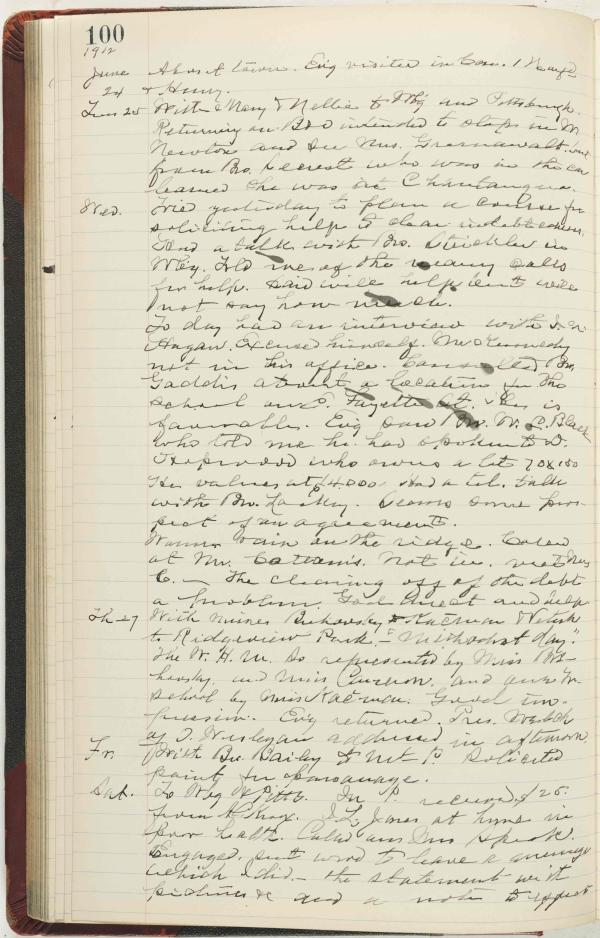 100
1912
June About town. Eng visited in Con.
24 & Henry.
Tues 25 With Mary & Nellie to Wbg and Pittsburgh.
Returning on B&O intended to stop in M
Newton and see Mrs. and
from Bro. Secrest who was in the car
learned she was at Chautauqua.
Wed. Tried yesterday to plan a course for
soliciting help to clear indebtedness.
Had a talk with Bro. Strickler in
Wbg. Told me of the many calls
for help. Said will help but will
not say how much.
To day had an interview with
Hagan. Excused himself. McClennedy
not in his office. Consulted Bro.
Gaddis about a location for the
school on E. Fayette St. He is
favorable. Eng saw Mr. W. C. Black
who told me he had spoken to D.
Hopwood who owns a lot 70 x 150
He values at $4,000. Had a tel. talk
with Bro. Laskey. Seems some pros-
pect of an agreement.
Warmer. Rain on the ridge. Called
at Mr. Cattern's. Not in. Met Mrs
C. — The clearing off of the debt
a problem. God direct and help
Th 27 With Misses & Kacmar
to Ridgeview Park, - "Methodist day."
The W. H. M. So represented by Miss
and Miss Cameron, and our Tr.
School by Miss Kacmar. Good im-
pression. Eng returned. Pres.
of O. Wesleyan addressed in afternoon
Fr. With Bro. Bailey to Mt. P. Solicited
paint for parsonage.
Sat. To Wbg & Pittb. In P. received $25.
from Knox. J. L. Jones at home in
poor health. Called on Speck.
Engaged, sent word to leave a message
which I did - the statement with
pictures & and a note to